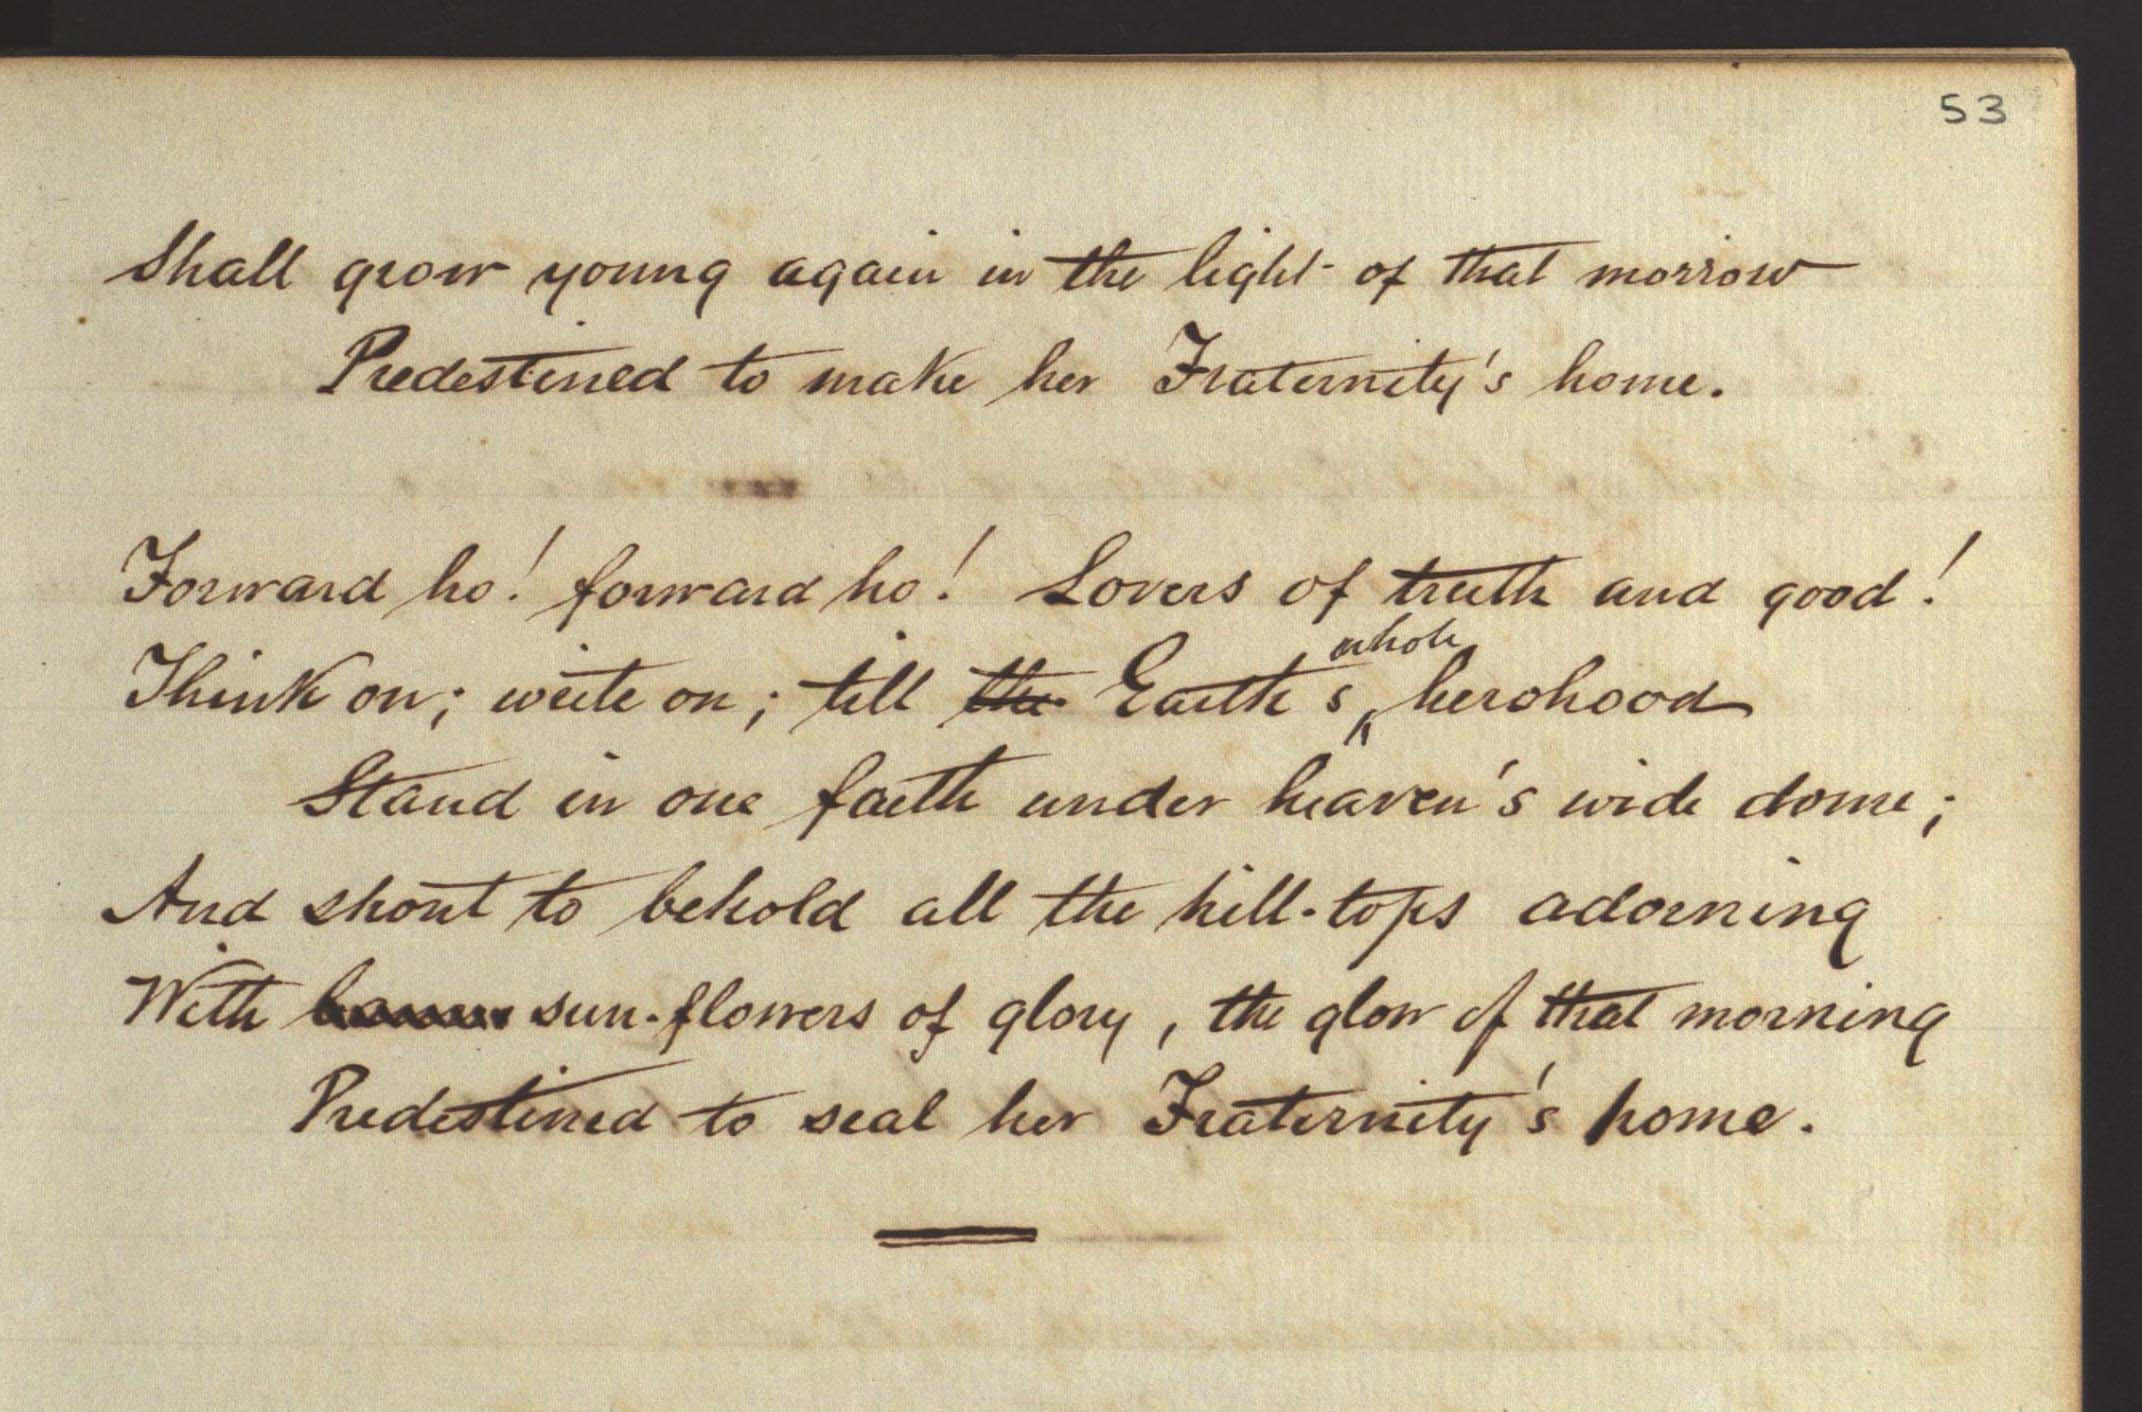 53
Shall grow young again in the light of that morrow
Predestined to make her Fraternity's home.
Forward ho! forward ho! Lovers of truth and good!
Think on; write on; till the Earth's whole herohood
Stand in one faith under heaven's wide dome;
And shout to behold all the hill-tops adorning
With sun-flowers of glory, the glow of that morning
Predestined to seal her Fraternity's home.